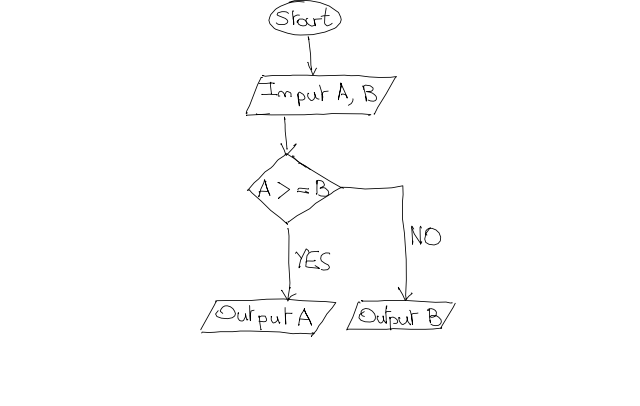 Start
Input A, B
A >= B
NO
YES
Output A
Output B